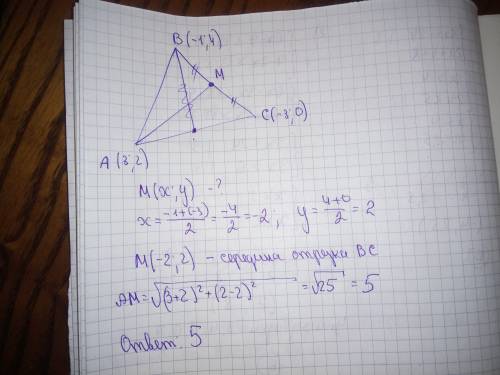 B(-1; 4)
M
C(-3; 0)
A(3; 2)
M(x; y) -?
x = \frac{-1+(-3)}{2} = \frac{-4}{2} = -2, y = \frac{4+0}{2} = 2
M(-2; 2) - середина отрезка BC
AM = \sqrt{(3+2)^2+(2-2)^2} = \sqrt{25} = 5
Ответ: 5